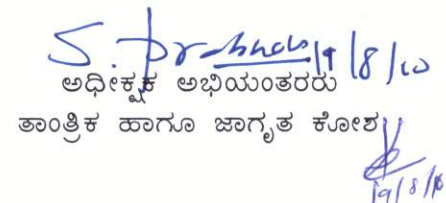 S. Prabhu 19/8/10
ಅಧೀಕ್ಷಕ ಅಭಿಯಂತರರು
ತಾಂತ್ರಿಕ ಹಾಗೂ ಜಾಗೃತ ಕೋಶ
19/8/10